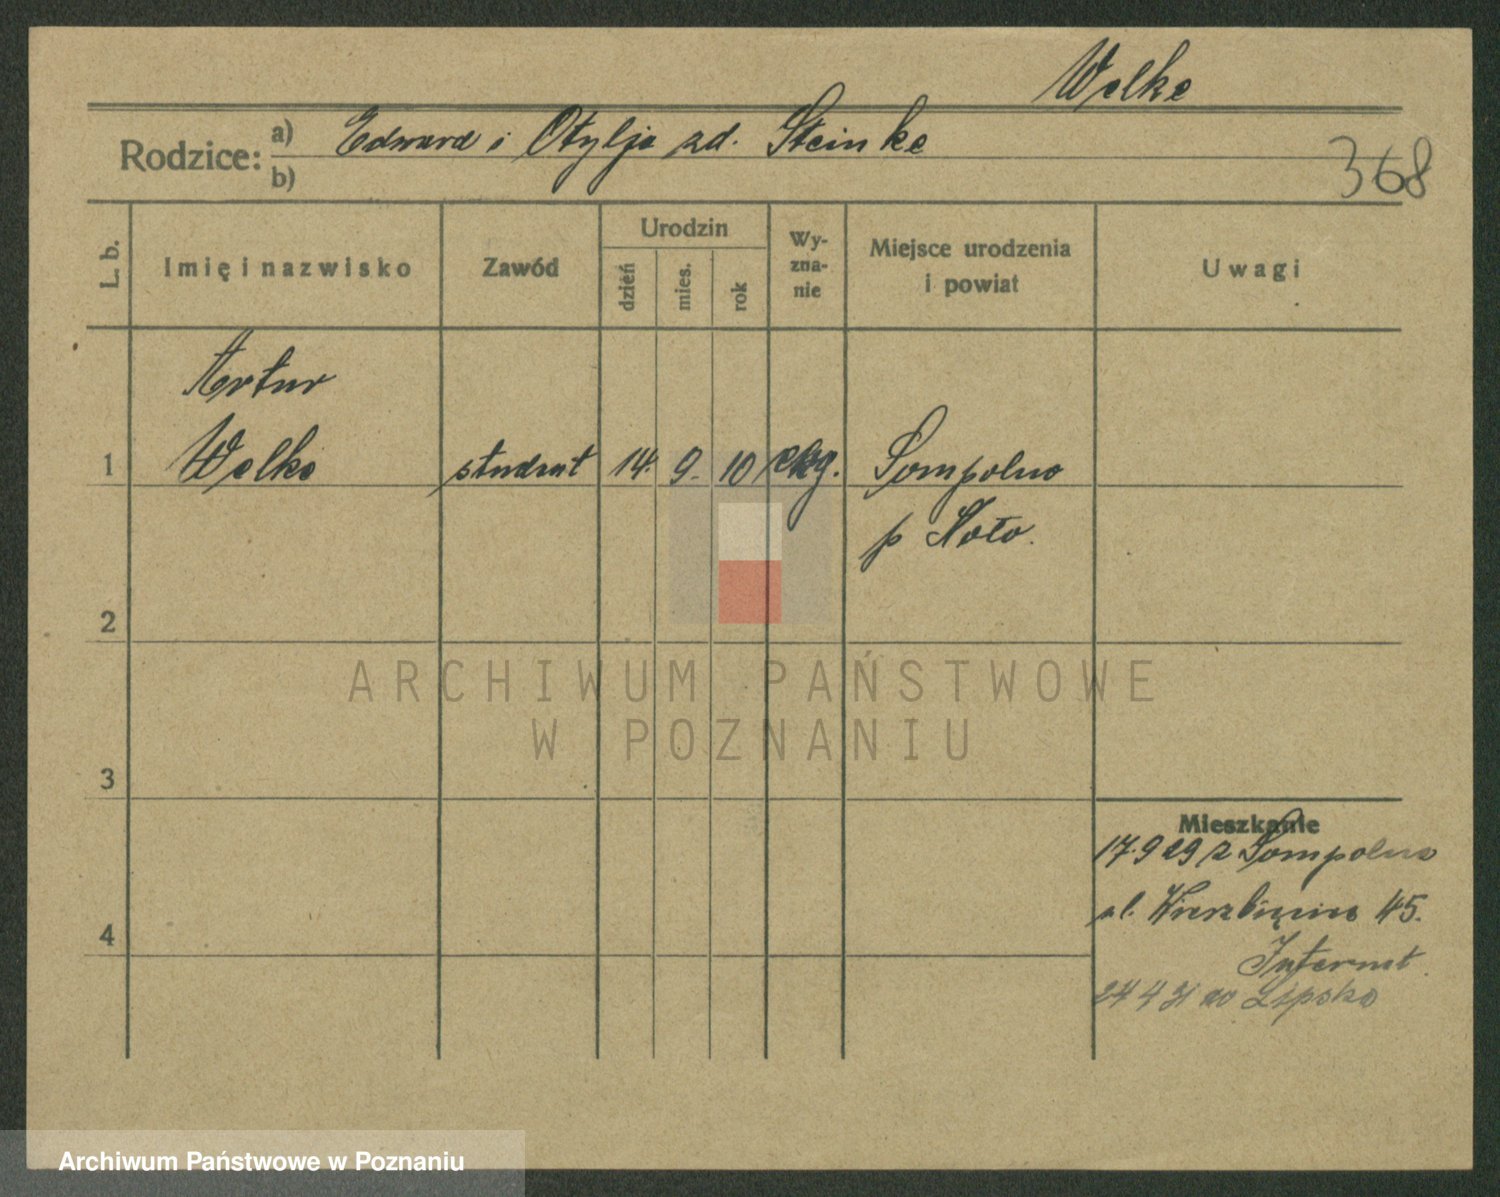 Welke
Rodzice: a) Edward i Otylja zd. Steinke
b)
368
L. b.
Imię i nazwisko
Zawód
Urodzin
dzień
mies.
rok
Wy-
zna-
nie
Miejsce urodzenia
i powiat
Uwagi
Artur
1 Welke student 14. 9. 10 ekg. Sompolno
p Koło.
2
3
4
Mieszkanie
17.9 29 z Sompolna
ul. 45.
Internat
24 4 31 do Lipska
ARCHIWUM PAŃSTWOWE
W POZNANIU
Archiwum Państwowe w Poznaniu